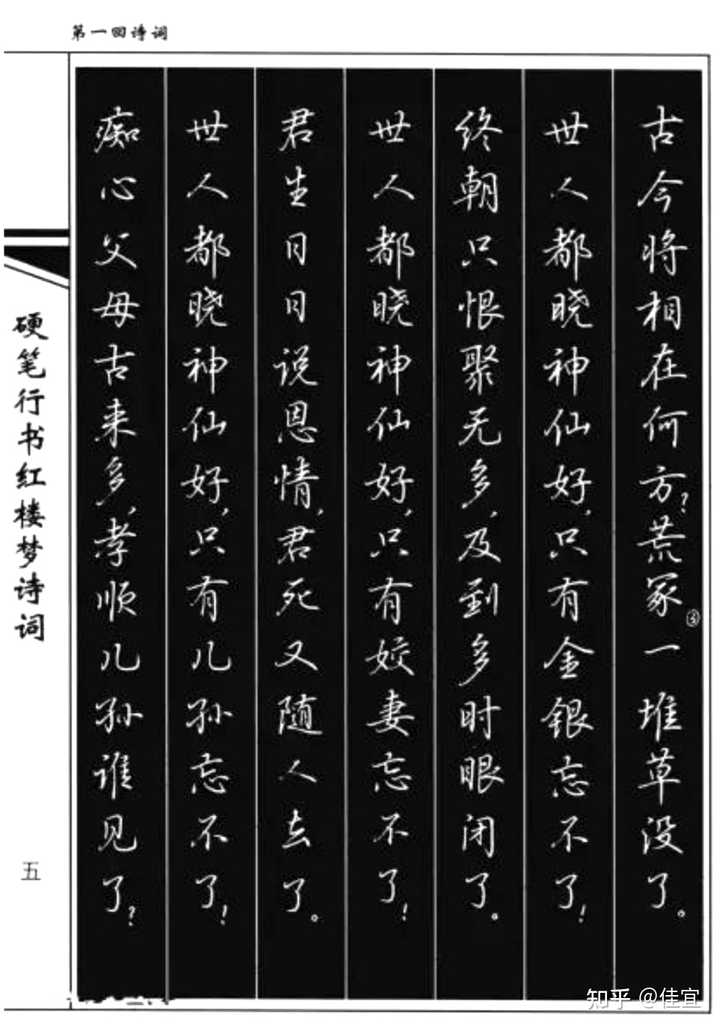 第一回诗词
古今将相在何方?荒冢③一堆草没了。
世人都晓神仙好,只有金银忘不了!
终朝只恨聚无多,及到多时眼闭了。
世人都晓神仙好,只有姣妻忘不了!
君生日日说恩情,君死又随人去了。
世人都晓神仙好,只有儿孙忘不了!
痴心父母古来多,孝顺儿孙谁见了?
硬笔行书红楼梦诗词
五
知乎 @佳宜